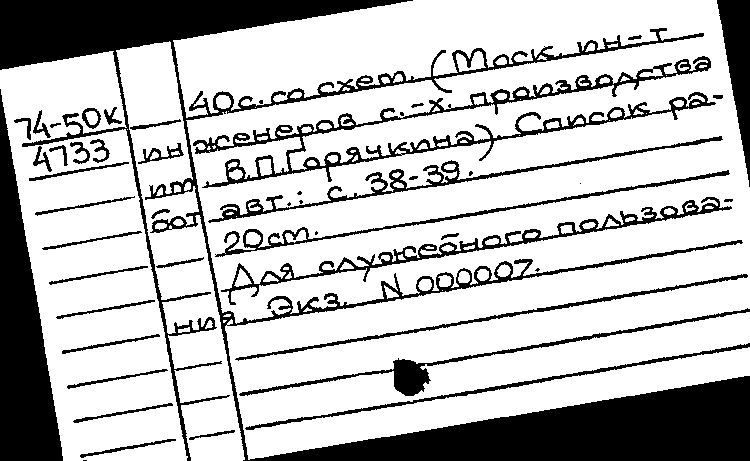 74-50к
4733
40с.со схем. (Моск. ин-т
инженеров с.-х. производства
им. В.П.Горячкина). Список ра-
бот авт.: с. 38-39.
20см.
Для служебного пользова-
ния. Экз. N 000007.